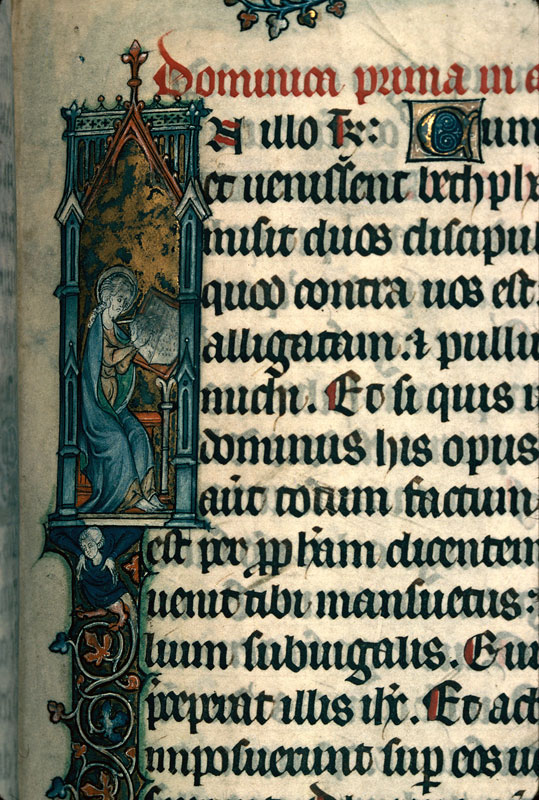 Dominica prima in a
N illo t̄: Cum
et uenissēt bethph
misit duos discipul
quod contra uos est
alligatam. ⁊ pullu
michi. Et si quis u
dominus his opus
aūt totum factum
est per ꝓph̄am dicentem
uenit tibi mansuetus:
lium subiugalis. Eun
preperat illis ih̄c. Et ad
imposuerunt sup̄ eos ue